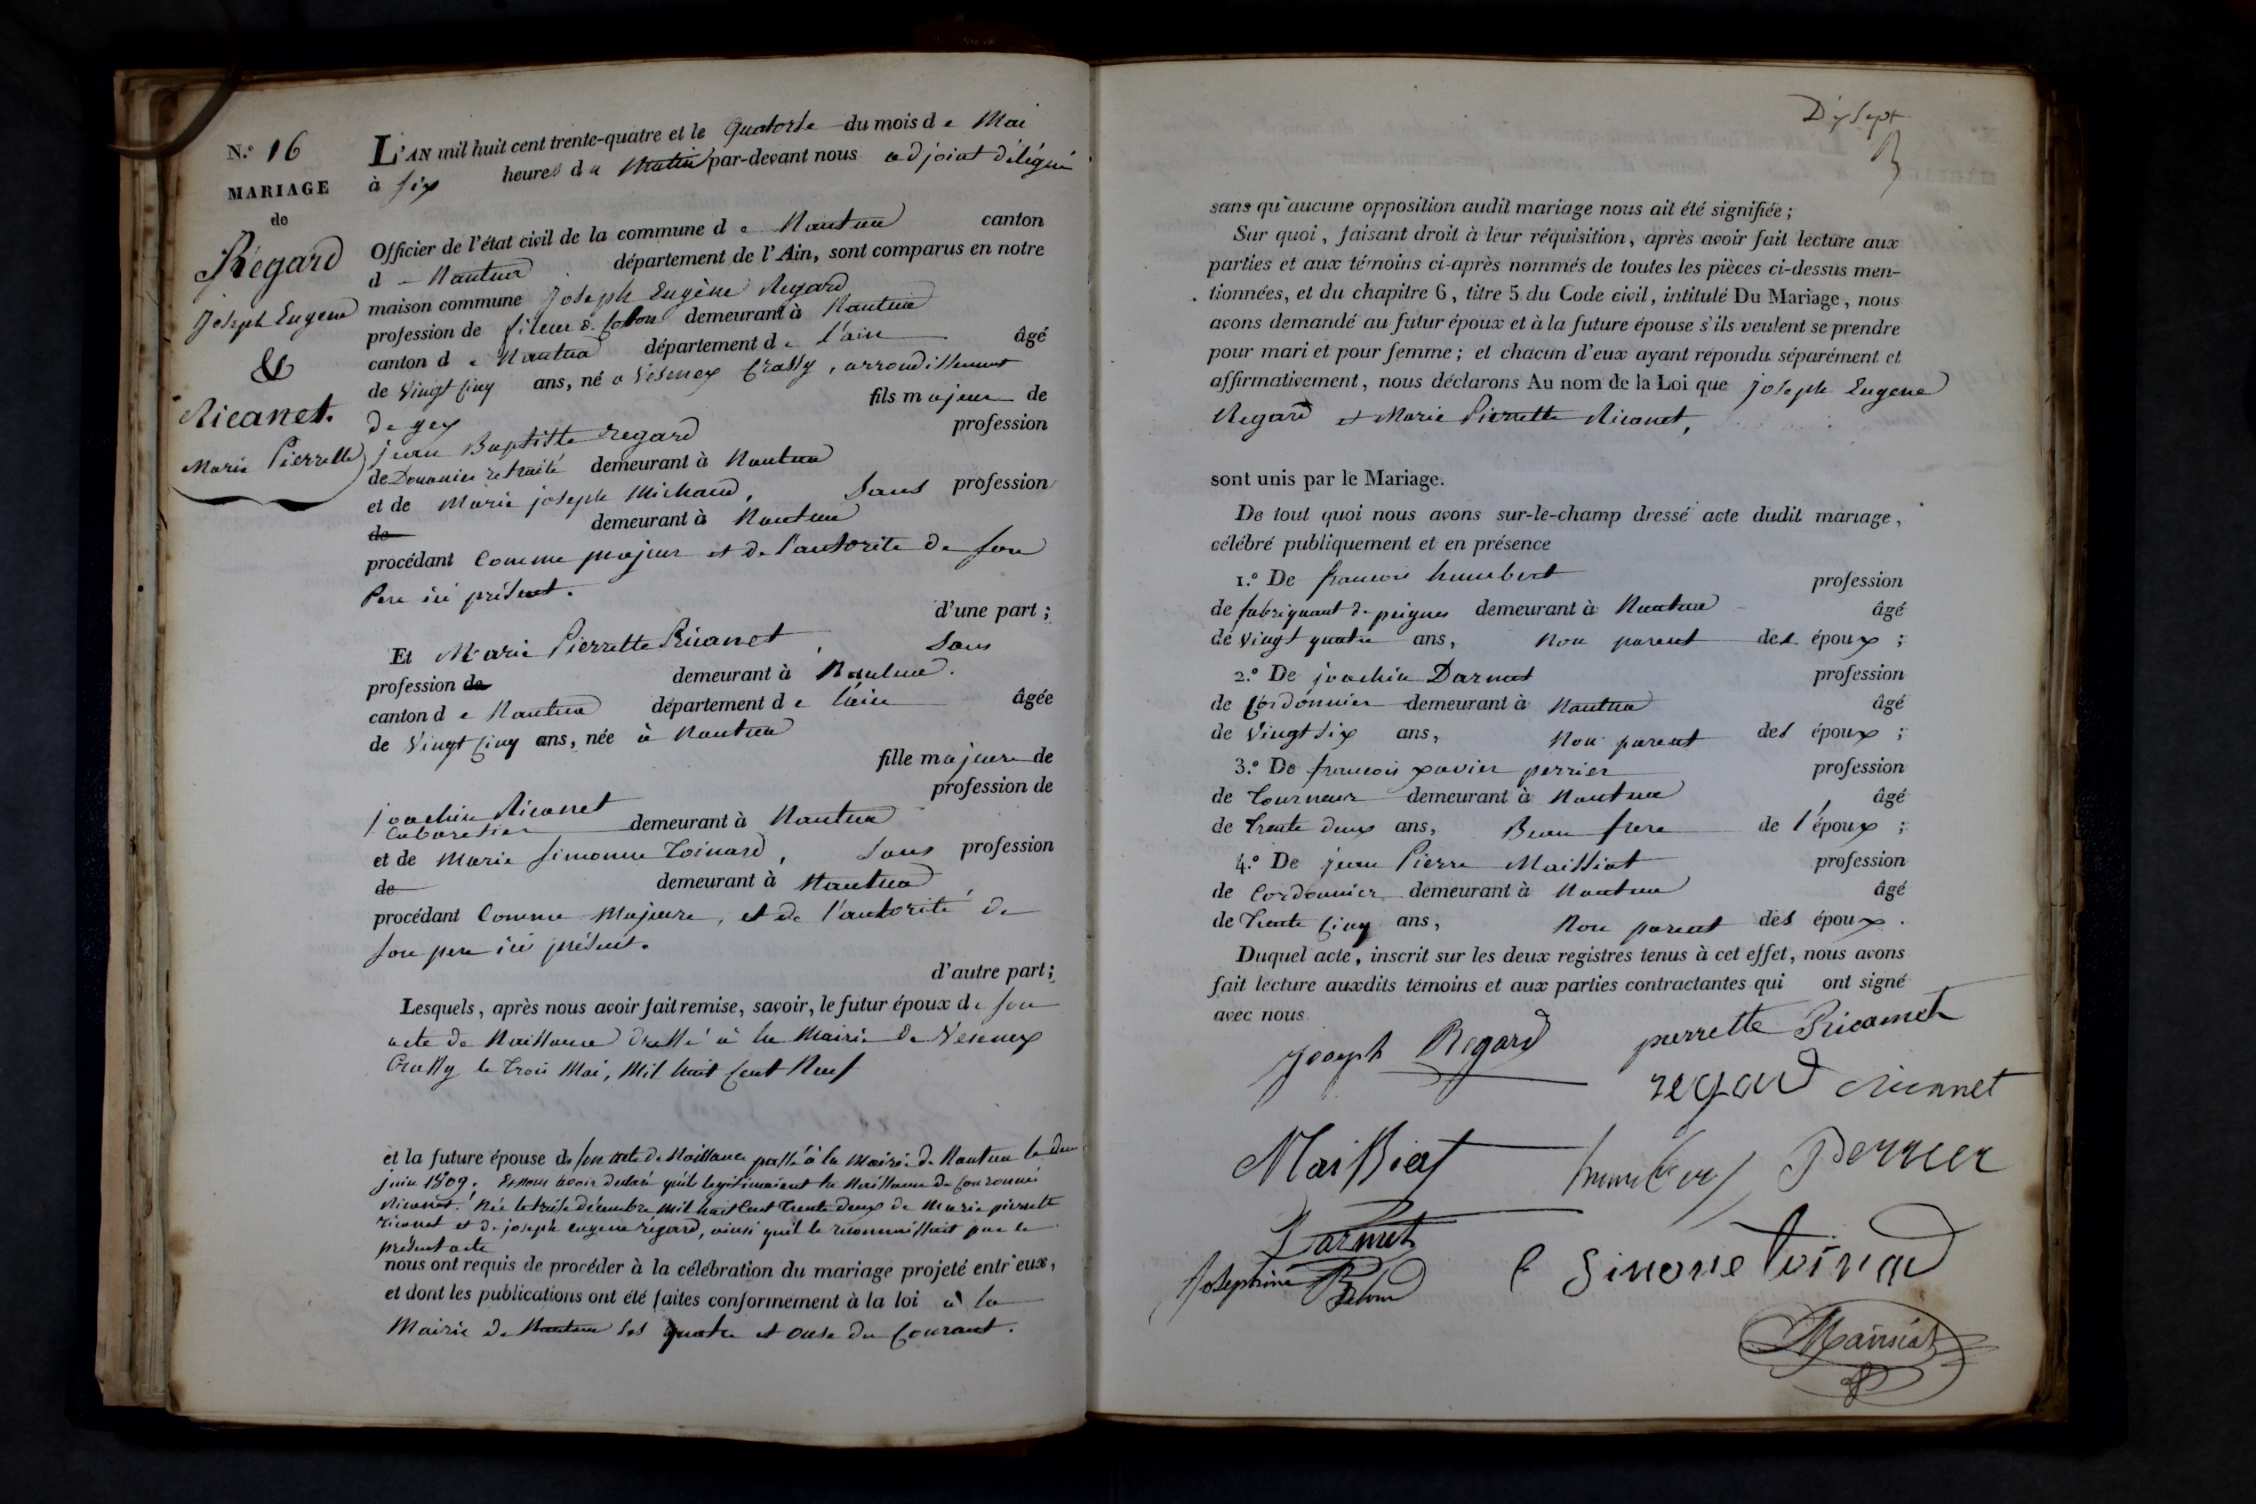 N.º 16
MARIAGE
de
Regard
Joseph Eugene
&
Ricanet.
Marie Pierrette
L'AN mil huit cent trente-quatre et le Quatorse du mois de Mai
à six heures du Matin par-devant nous adjoint délégué
Officier de l'état civil de la commune de Nantua canton
d Nantua département de l'Ain, sont comparus en notre
maison commune Joseph Eugène Regard
profession de fileur de Coton demeurant à Nantua
canton de Nantua département de l'ain âgé
de Vingt Cinq ans, né a Vesenex Crassy, arrondissement
de gex fils majeur de
jean Baptiste regard profession
de Douanier retraité demeurant à Nantua
et de Marie joseph Michaud, Sans profession
de demeurant à Nantua
procédant Comme majeur et de l'autorité de son
Pere ici présent.
d'une part ;
Et Marie Pierrette Ricanet, Sans
profession de demeurant à Nantua.
canton de Nantua département de l'ain âgée
de Vingt Cinq ans, née à Nantua
fille majeure de
joachin Ricanet profession de
Cabaretier demeurant à Nantua
et de Marie Simonne Toinard, Sans profession
de demeurant à Nantua
procédant Comme Majeure, et de l'autorité de
Son pere ici présent.
d'autre part ;
Lesquels, après nous avoir fait remise, savoir, le futur époux de son
acte de Naissance dressé à la Mairie de Vesenex
Crassy le Trois Mai, Mil huit Cent Neuf
et la future épouse de son acte de Naissance passé à la Mairie de Nantua le deux
juin 1809. Et nous avoir declaré qu'ils legitimaient la Naissance de
Ricanet. Née le treise décembre mil huit Cent Trente deux de Marie pierrette
ricanet et de joseph eugene regard, ainsi qu'il le reconnaissait par le
présent acte
nous ont requis de procéder à la célébration du mariage projeté entr'eux,
et dont les publications ont été faites conformément à la loi à la
Mairie de Nantua les quatre et onse du Courant.
Dix Sept
sans qu'aucune opposition audit mariage nous ait été signifiée ;
Sur quoi, faisant droit à leur réquisition, après avoir fait lecture aux
parties et aux témoins ci-après nommés de toutes les pièces ci-dessus men-
tionnées, et du chapitre 6, titre 5 du Code civil, intitulé Du Mariage, nous
avons demandé au futur époux et à la future épouse s'ils veulent se prendre
pour mari et pour femme ; et chacun d'eux ayant répondu séparément et
affirmativement, nous déclarons Au nom de la Loi que joseph Eugene
Regard et Marie Pierrette Ricanet,
sont unis par le Mariage.
De tout quoi nous avons sur-le-champ dressé acte dudit mariage,
célébré publiquement et en présence
1.º De francois humbert profession
de fabriquant de peignes demeurant à Nantua âgé
de vingt quatre ans, Non parent des époux ;
2.º De joachin Darmet profession
de Cordonnier demeurant à Nantua âgé
de Vingt six ans, Non parent des époux ;
3.º De francois xavier perrier profession
de Tourneur demeurant à Nantua âgé
de Trente deux ans, Beau frere de l'époux ;
4.º De jean Pierre Maissiat profession
de Cordonnier demeurant à Nantua âgé
de Trente Cinq ans, Non parent des époux.
Duquel acte, inscrit sur les deux registres tenus à cet effet, nous avons
fait lecture auxdits témoins et aux parties contractantes qui ont signé
avec nous
Joseph Regard pierrette Ricamet
regard Ricannet
Maissiat humbert Perrier
Darmet
Josephine Simone Toinad
Mainsiat